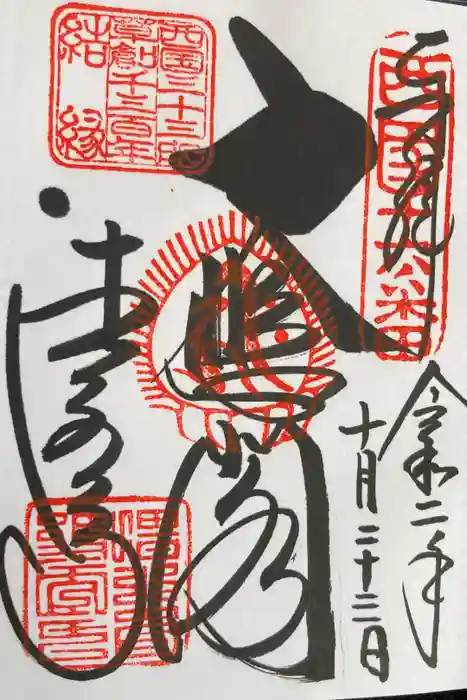 奉拝
西国十六番
令和二年
十月二十三日
大悲閣
西国三十三所
草創千三百年
結縁
清水寺